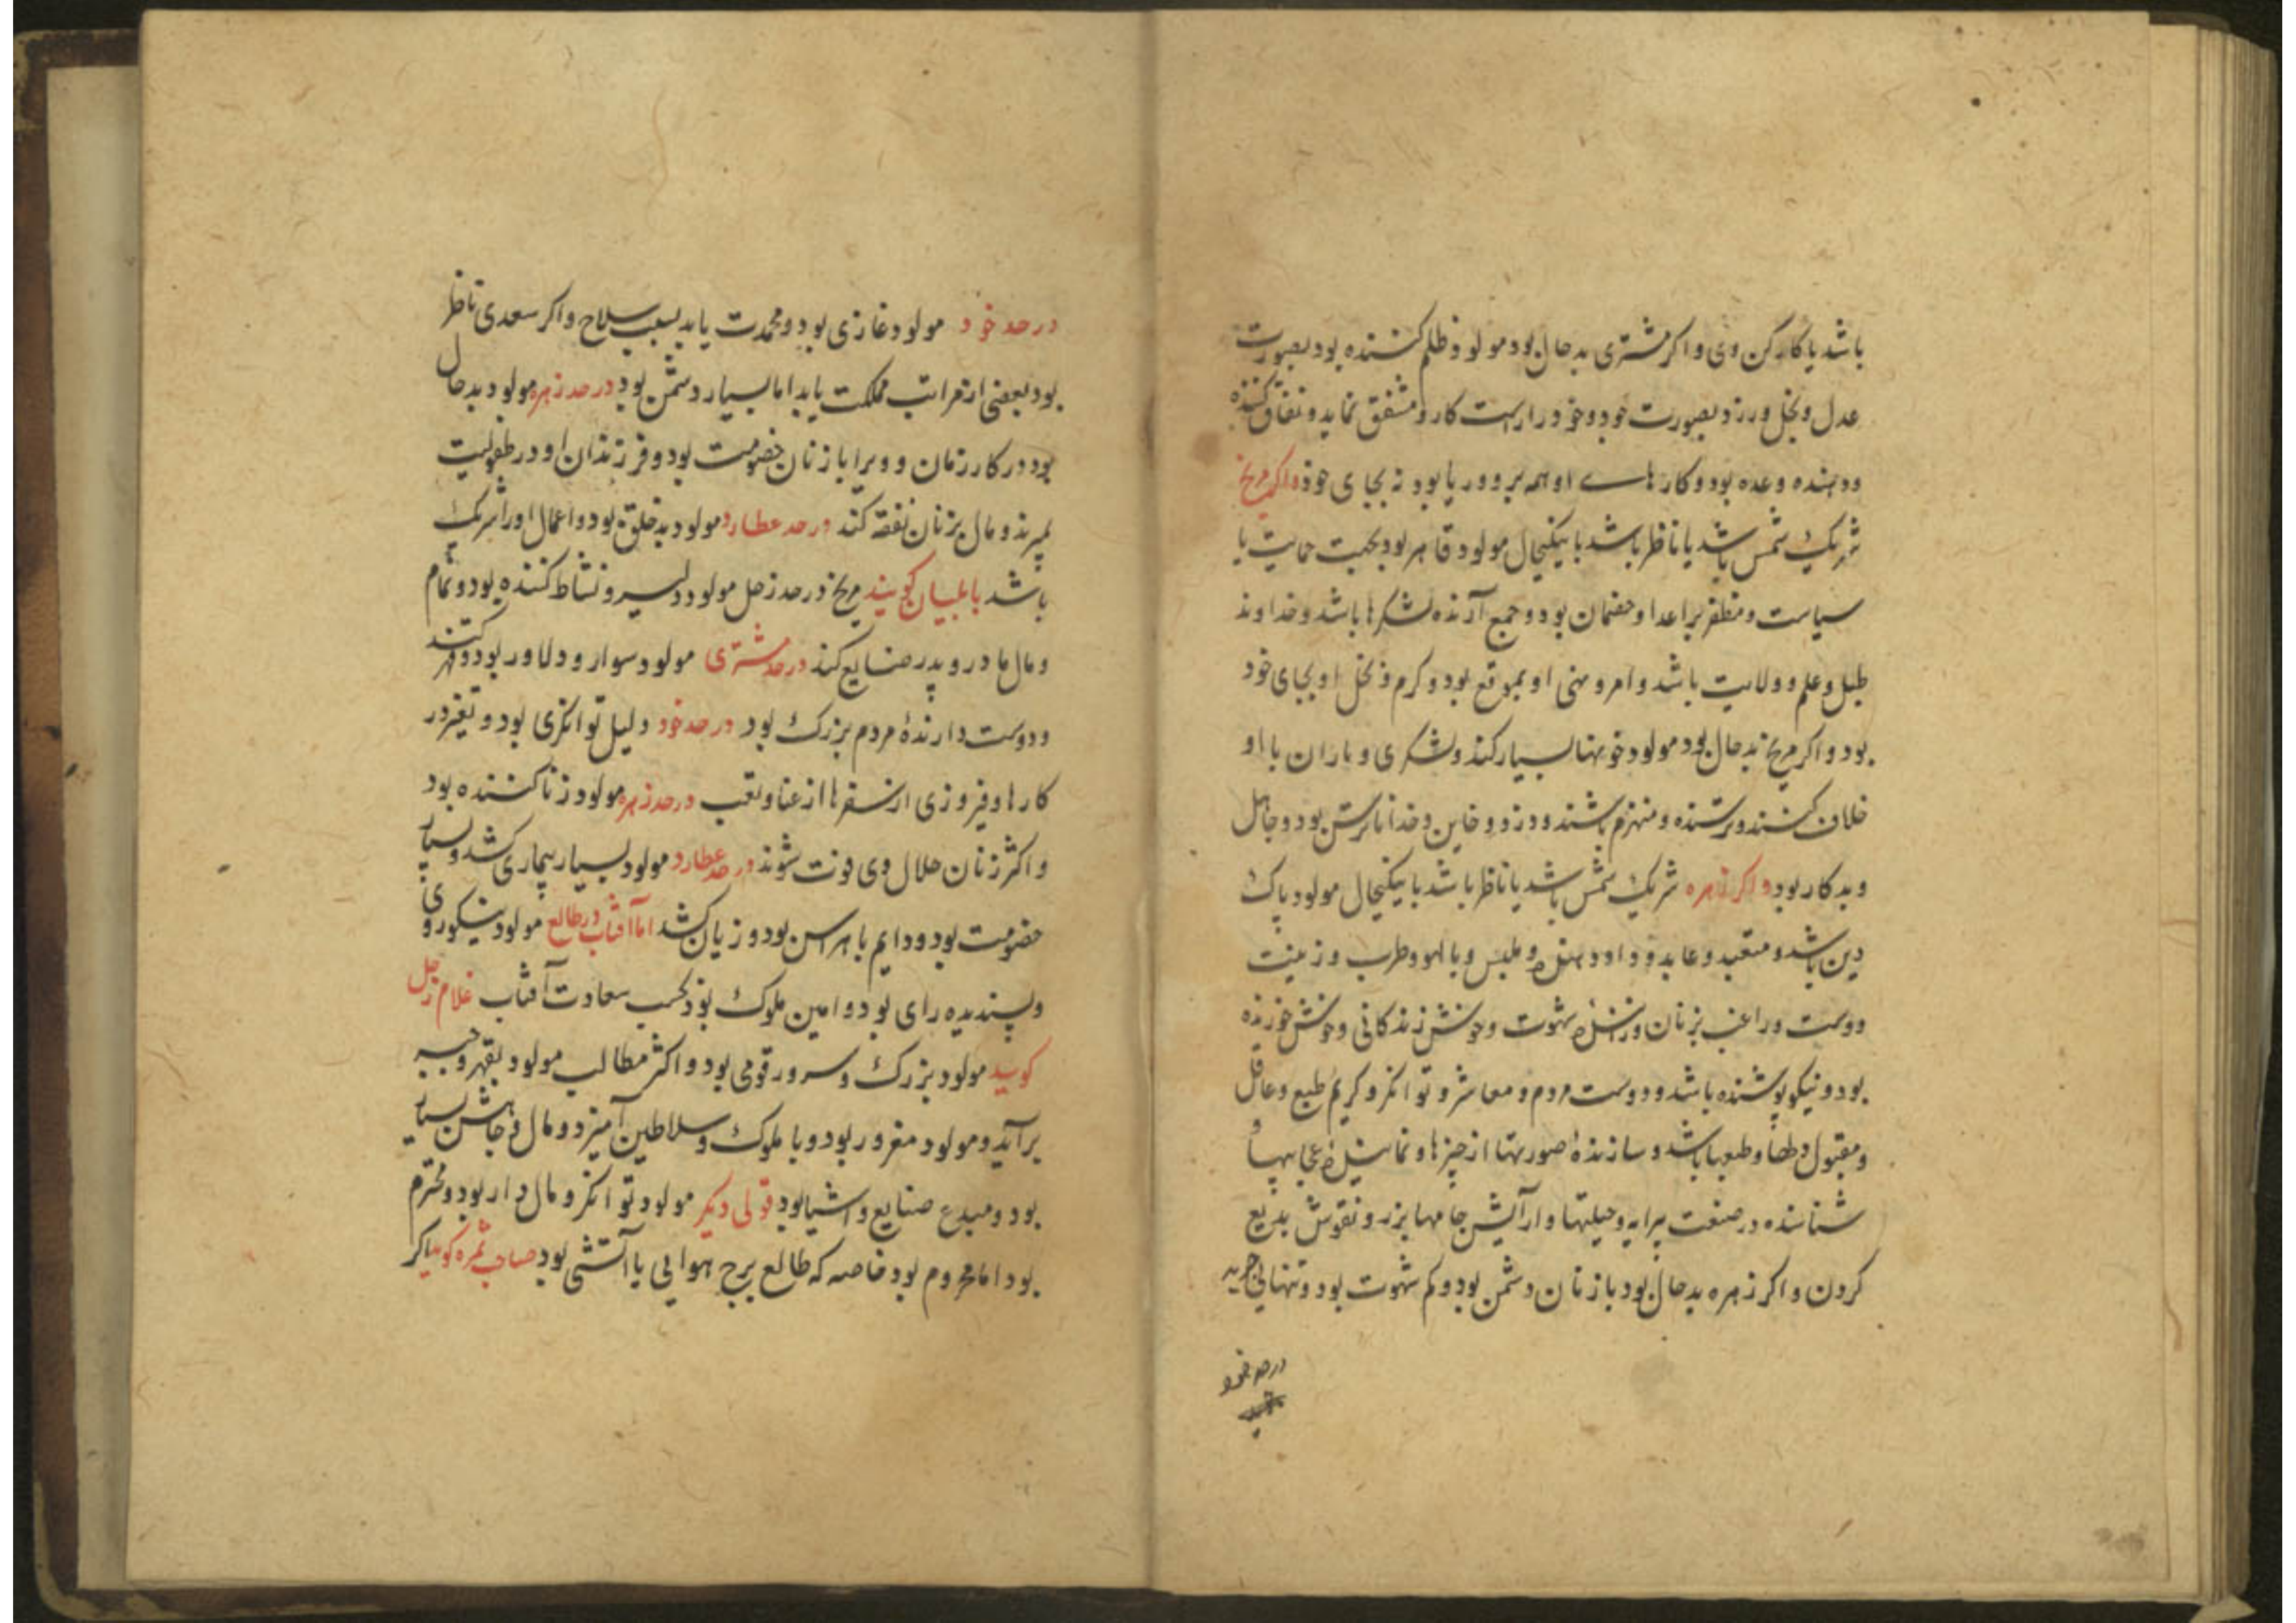 باشد یا کارکن وی و اکر مشتری بدحال بود مولود ظلم کننده بود بصورت
عدل و بخل ورزد بصورت جود و خود را راست کار و مشفق نماید و نفاق کننده
و دهنده وعده بود و کارهاے او همه بر وریا بود نه بجای خود و اکر مریخ
شریک شمس باشد یا ناظر باشد با نیکحال مولود قاهر بود بجهت حمایت یا
سیاست و مظفر بر اعدا و خصمان بود و جمع آرنده لشکرها باشد و خداوند
طبل و علم و ولایت باشد و امر و نهی او بموقع بود و کرم و بخل او بجای خود
بود و اکر مریخ بدحال بود مولود خونها بسیار کند و لشکری و یاران با او
خلاف کنند و ترسنده و منهزم باشند و دزد و خاین و خدا ناترس بود و جاهل
و بدکار بود و اکر زهره شریک شمس باشد یا ناظر باشد با نیکحال مولود پاک
دین باشد و متعبد و عابد و و ملبس و با لهو و طرب و زینت
دوست و راغب بزنان و شهوت و خوش زندکانی و خوش خورنده
بود و نیکو پوشنده باشد و دوست مردم و معاشر و توانکر و کریم طبع و عاقل
و مقبول و طبعا باشد و سازندهٔ صورتها از چیزها و عجایبها
شناسنده در صنعت پیرایه و حیلتها و آرایش جامها بزر و نقوش بدیع
کردن و اکر زهره بدحال بود با زنان دشمن بود و کم شهوت بود و تنهایی جوید
در حد خود
در حد خود مولود غازی بود و محمدت یابد بسبب سلاح و اکر سعدی ناظر
بود بعضی از مراتب مملکت یابد اما بسیار دشمن بود در حد زهره مولود بدحال
بود در کار زنان و ویرا با زنان خصومت بود و فرزندان او در طفولیت
بمیرند و مال بزنان نفقه کند در حد عطارد مولود بدخلق بود و اعمال او را شریک
باشد بابلیان کویند مریخ در حد زحل مولود دلیر و نشاط کننده بود و تمام
و مال مادر و پدر ضایع کند در حد مشتری مولود سوار و دلاور بود و قهر کننده
و دوست دارندهٔ مردم بزرک بود در حد خود دلیل توانکری بود و تغیر در
کارها و فیروزی از سفرها از عنا و تعب در حد زهره مولود زنا کننده بود
و اکثر زنان حلال وی فوت شوند در حد عطارد مولود بسیار بیماری کشد و بسیار
خصومت بود و دایم با هراس بود و زیان کشد اما آفتاب در طالع مولود نیکوروی
و پسندیده رای بود و امین ملوک بود بحسب سعادت آفتاب غلام زحل
کوید مولود بزرک و سرور قومی بود و اکثر مطالب مولود بقهر و جبر
برآید و مولود مغرور بود و با ملوک و سلاطین آمیزد و مال و جاهش بسیار
بود و مبدع صنایع و اشیا بود قولی دیکر مولود توانکر و مال دار بود و محترم
بود اما محروم بود خاصه که طالع برج هوایی یا آتشی بود صاحب ثمره کوید اکر